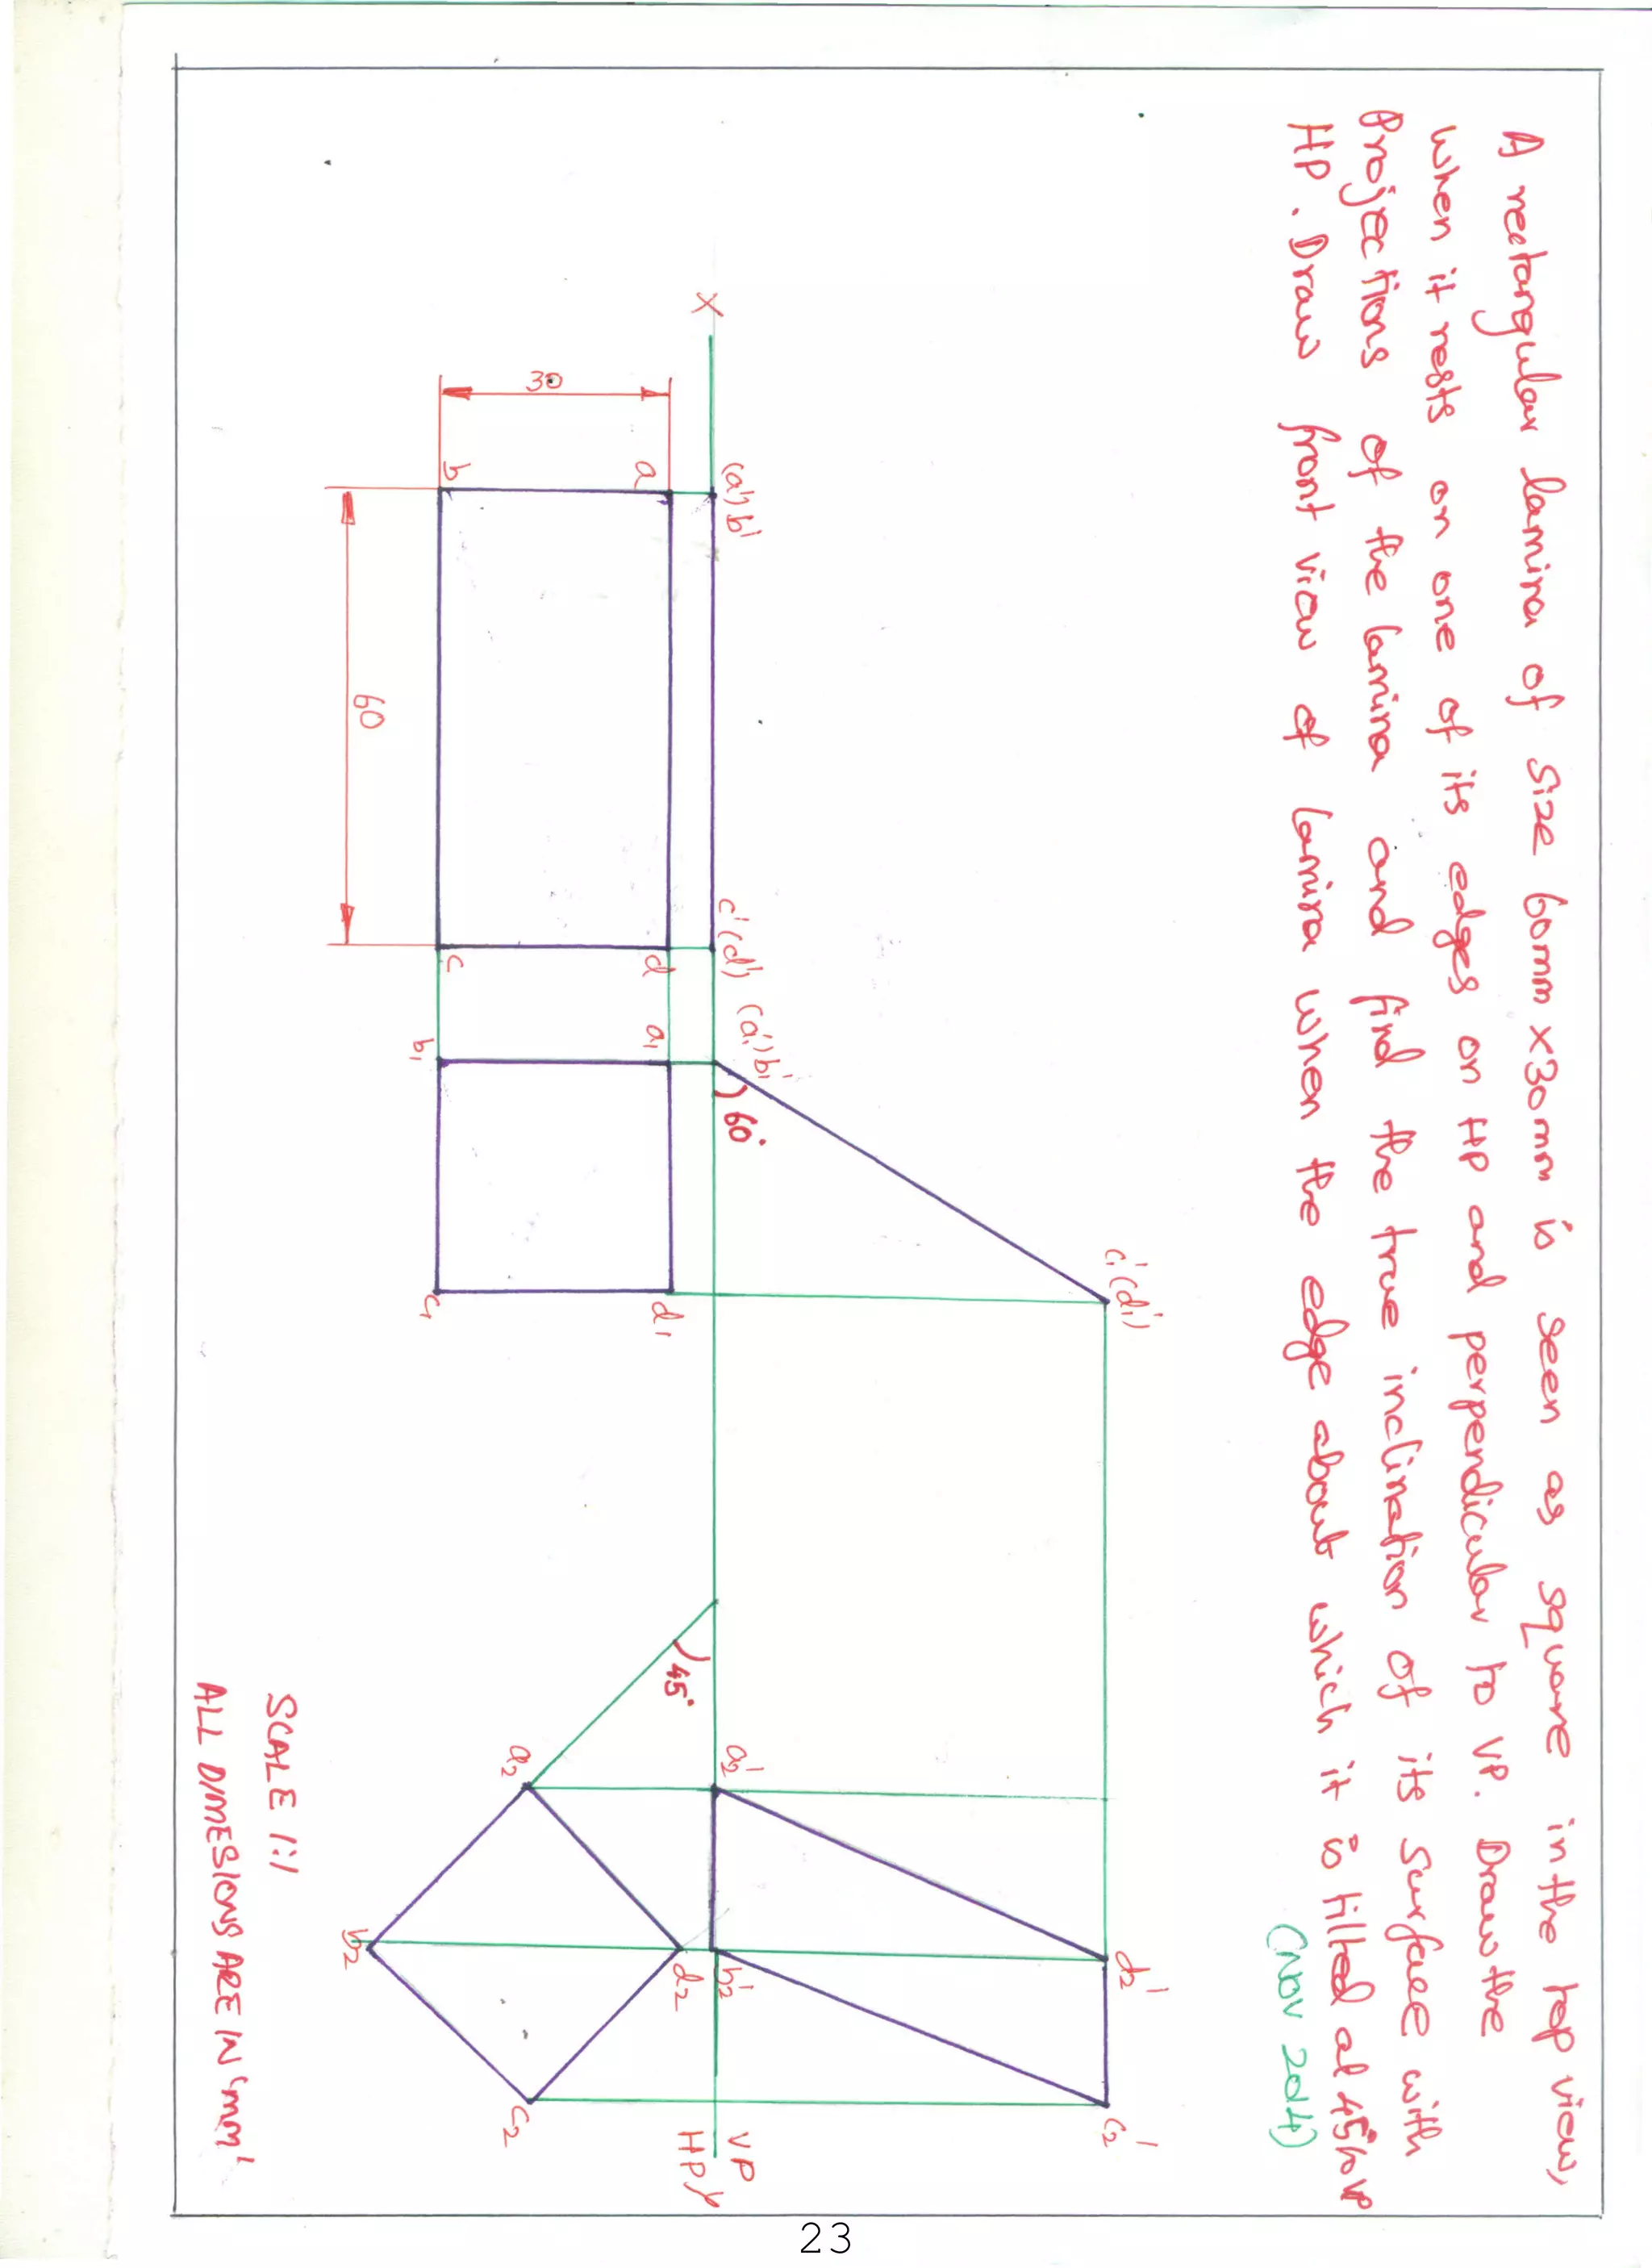 A rectangular lamina of size 60mm x30mm is seen as square in the top view,
when it rests on one of its edges on HP and perpendicular to VP. Draw the
Projections of the lamina and find the true inclination of its surface with
HP. Draw front view of lamina when the edge about which it is tilted at 45° to VP
(NOV 2014)
c1'(d1')
d2'
c2'
X
(a')b'
c'(d')
(a1')b1'
60°
a2'
b2'
VP
HP
Y
30
a
d
a1
d1
45°
d2
b
c
b1
c1
a2
c2
60
b2
SCALE 1:1
ALL DIMESIONS ARE IN 'mm'
23